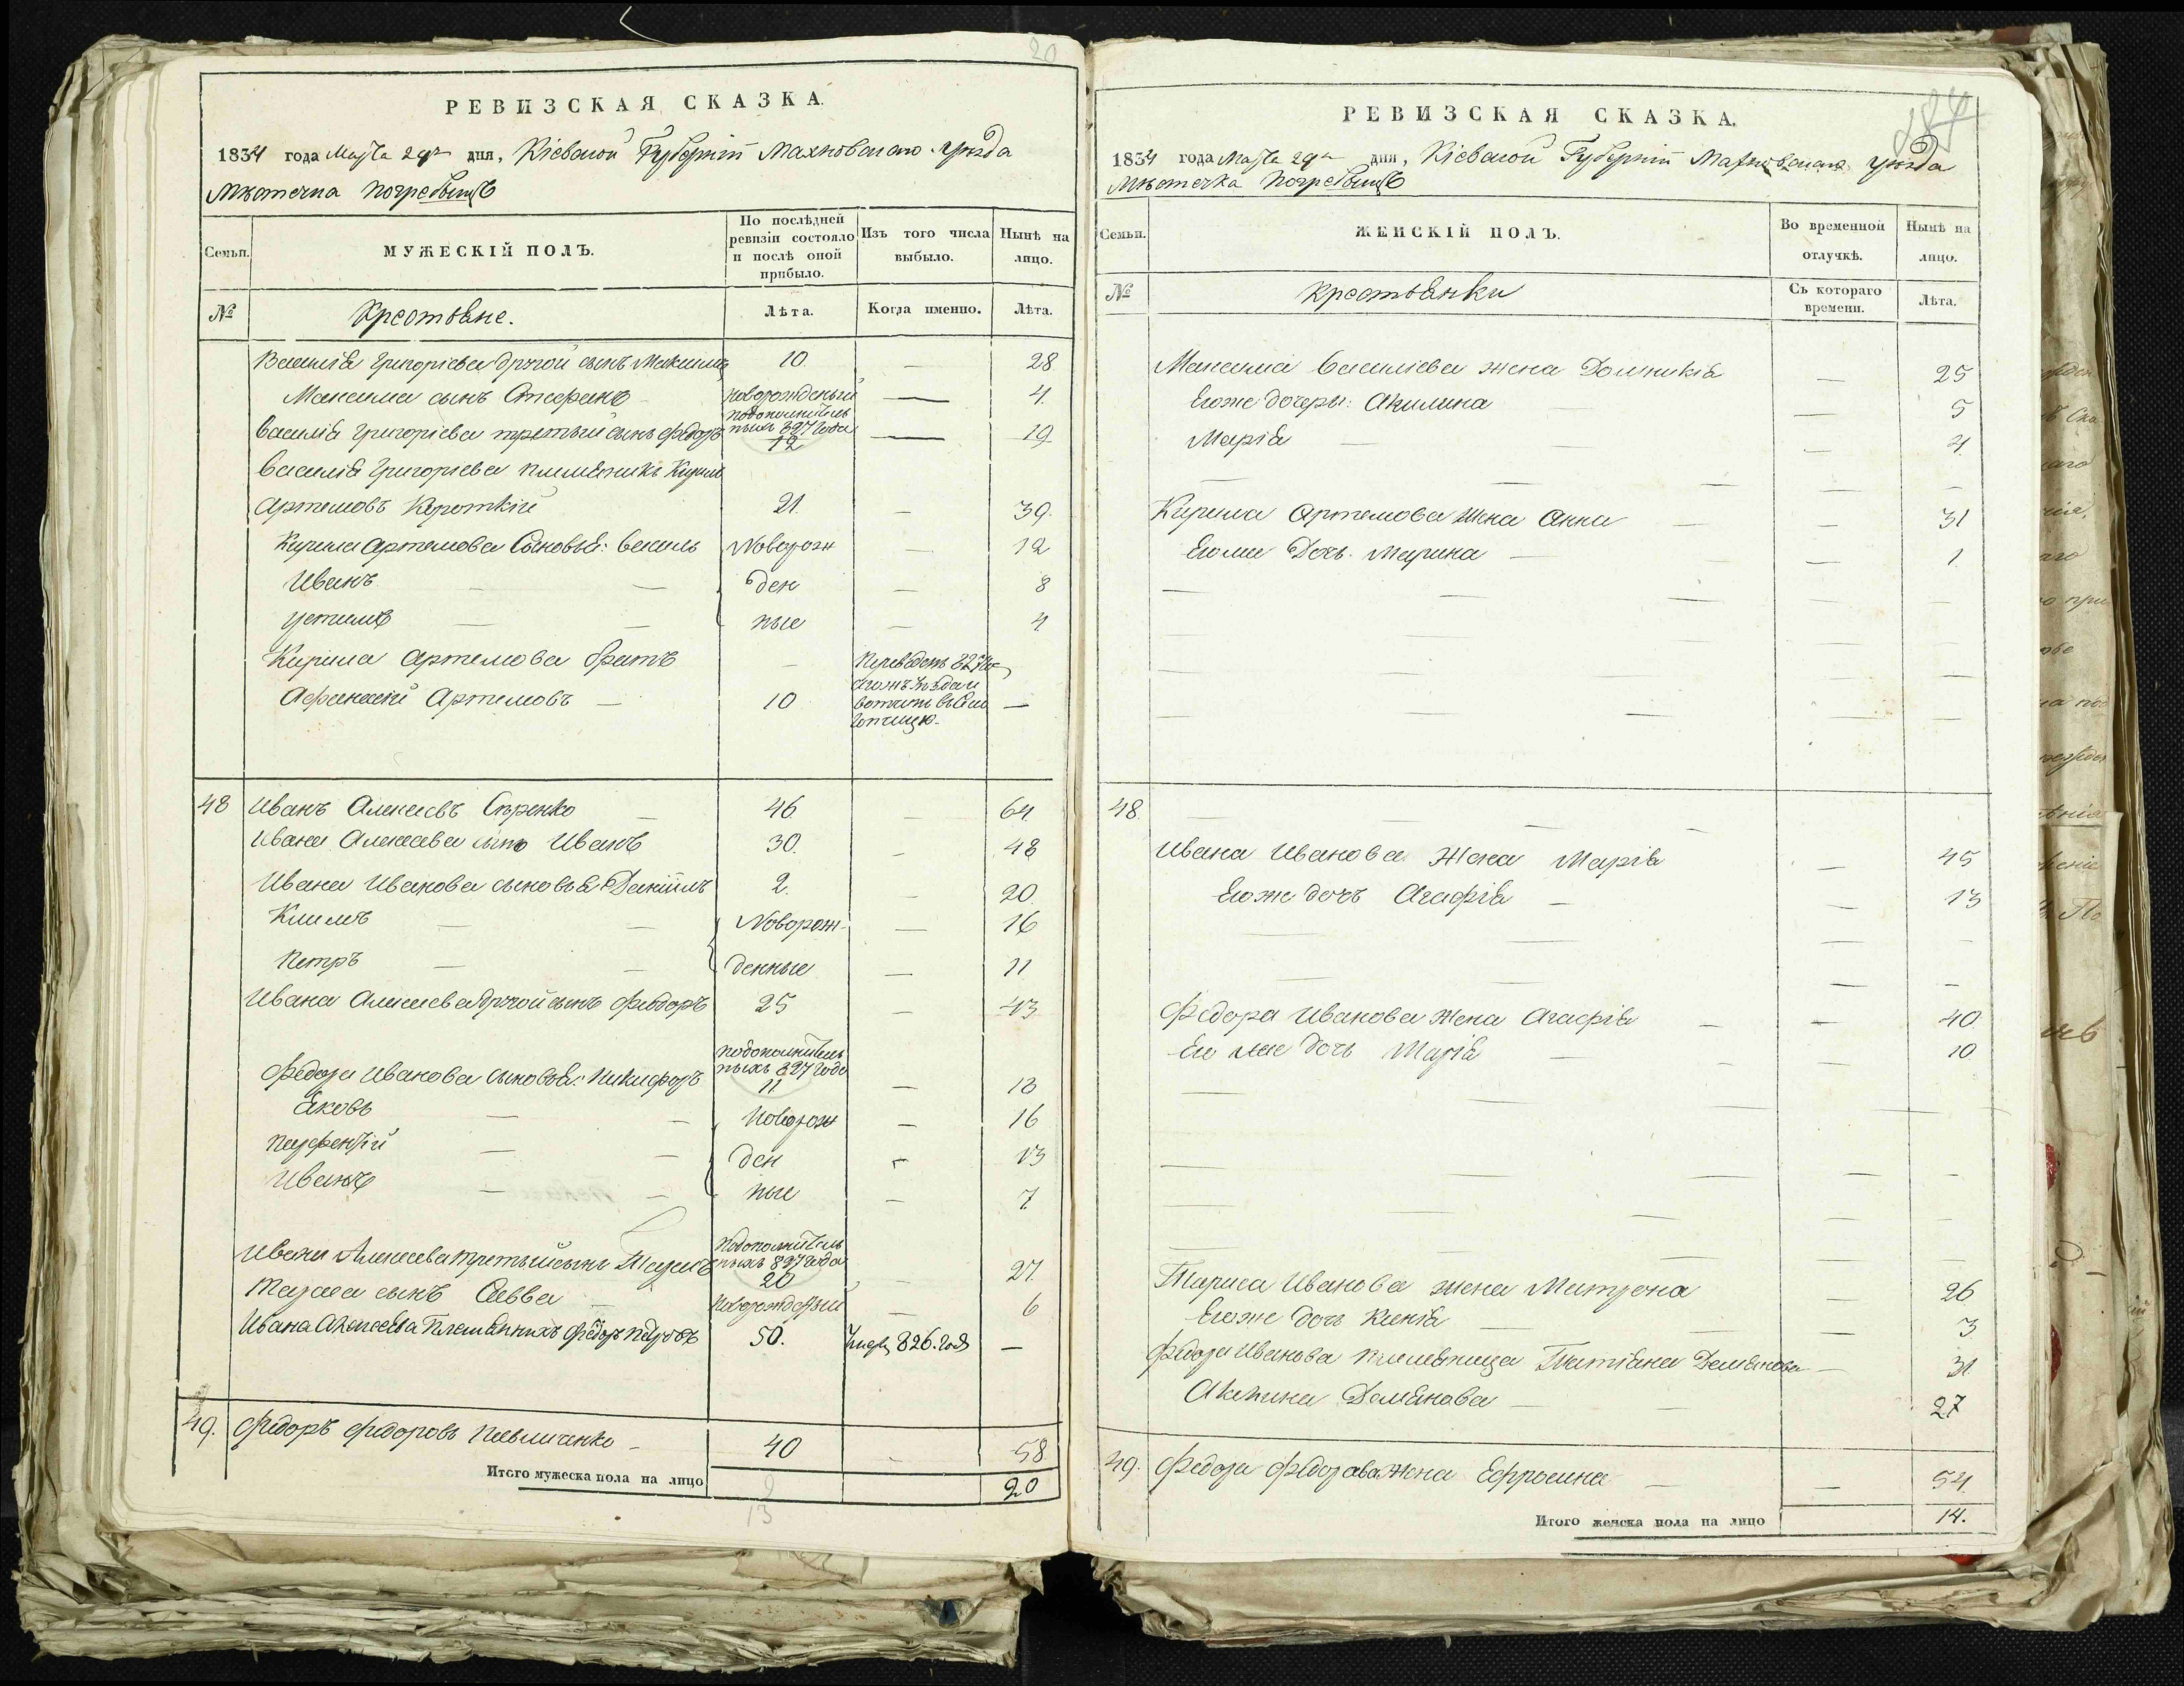 20
РЕВИЗСКАЯ СКАЗКА.
1834 года Марта 29го дня, Кіевской Губерніи Махновскаго уѣзда
Мѣстечка Погребищъ
Семьи.
МУЖЕСКІЙ ПОЛЪ.
По послѣдней ревизіи состояло и послѣ оной прибыло.
Изъ того числа выбыло.
Нынѣ на лицо.
№
Крестьяне.
Лѣта.
Когда именно.
Лѣта.
Василія Григоріева другой сынъ Максимъ 10. — 28
Максима сынъ Стефанъ новорожденый — 4.
Василія Григоріева третьий сынъ Федоръ по дополнительнымъ 827 года 12 — 19
Василія Григоріева племяникъ Кирилъ
Артемовъ Короткій 21. — 39.
Кирила Артемова сыновья: Василь Новорож — 12
Иванъ — — ден — 8
Устимъ — — ные — 4.
Кирила Артемова братъ — Переведенъ 827
Афанасій Артемовъ — 10 —
48 Иванъ Алексеевъ Сѣренко — 46 — 64
Ивана Алексеева сынъ Иванъ 30. — 48
Ивана Иванова сыновья: Даніилъ 2. — 20
Климъ — — Новорож — 16
Петръ — — денные — 11
Ивана Алексеева другой сынъ Федоръ 25 — 43
Федора Иванова сыновья: Никифоръ по дополнительнымъ 827 года 11 — 18
Яковъ — — Новорож — 16
Парфентій — — ден — 13
Иванъ — — ные — 7.
Ивана Алексеева третьий сынъ Тарасъ по дополнительнымъ 827 года 20 — 27.
Тараса сынъ Савва — новорожденый — 6
Ивана Алексеева племянникъ Федоръ Петровъ 50. умеръ 826. года —
49. Федоръ Федоровъ Павличенко — 40 — 58
Итого мужеска пола на лицо 20
13
РЕВИЗСКАЯ СКАЗКА.
1834 года Марта 29го дня, Кіевской Губерніи Махновскаго уѣзда
Мѣстечка Погребищъ
Семьи.
ЖЕНСКІЙ ПОЛЪ.
Во временной отлучкѣ.
Нынѣ на лицо.
№
Крестьянки
Съ котораго времени.
Лѣта.
Максима Василіева жена Домникія — 25
Его же дочеры: Акилина — 5
Марія — — 4
Кирила Артемова жена Анна — — 31
Его же дочь Марина — — 1.
48.
Ивана Иванова жена Марія — 45
Его же дочь Агафія — — 13
Федора Иванова жена Агафія — — 40
Его же дочь Марія — — 10
Тараса Иванова жена Матрона — 26
Его же дочь Ксенія — — 3
Федора Иванова племяница Татіяна Демянова — 31.
Акилина Демянова — 27
49. Федора Федорова жена Ефросина — — 54
Итого женска пола на лицо 14.